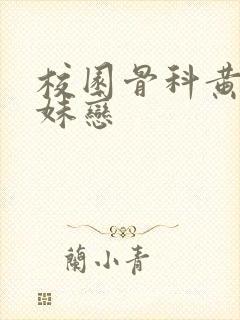 校園骨科黄
妹戀
蘭小青